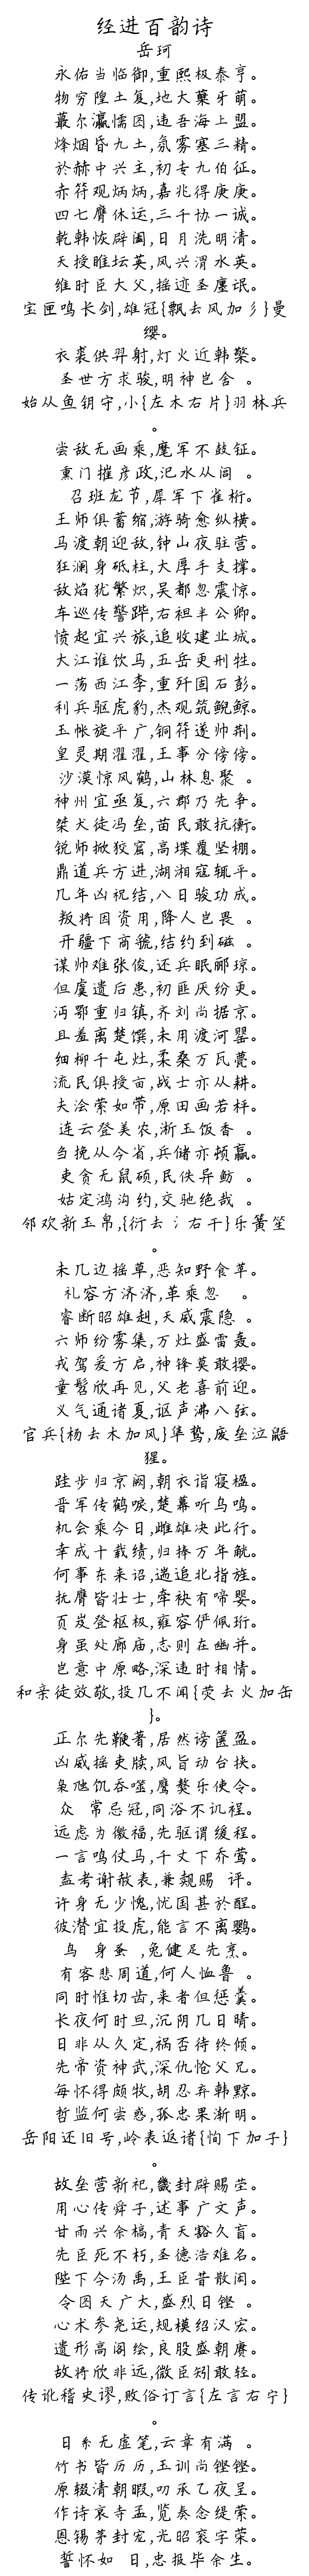 经进百韵诗
岳珂
永佑当临御,重熙极泰亨。
物穷隍土复,地大蘖牙萌。
蕞尔瀛懦图,违吾海上盟。
烽烟昏九土,氛雾塞三精。
於赫中兴主,初专九伯征。
赤符观炳炳,嘉兆得庚庚。
四七膺休运,三千协一诚。
乾韩恢辟阖,日月洗明清。
天授睢坛英,风兴渭水英。
维时臣大父,摇迹圣廛氓。
宝匣鸣长剑,雄冠{飘去风加彡}曼
缨。
衣裘供羿射,灯火近韩檠。
圣世方求骏,明神岂舍 。
始从鱼钥守,小{左木右片}羽林兵
。
尝敌无画乘,麾军不鼓钲。
熏门摧彦政,汜水从闾 。
召班龙节,犀军下雀桁。
王师俱蓄缩,游骑愈纵横。
马渡朝迎敌,钟山夜驻营。
狂澜身砥柱,大厚手支撑。
敌焰犹繁炽,吴都忽震惊。
车巡传警跸,右袒半公卿。
愤起宜兴旅,追收建业城。
大江谁饮马,五岳更刑牲。
一荡西江李,重歼固石彭。
利兵驱虎豹,杰观筑鲵鲸。
玉帐旋平广,铜符遂帅荆。
皇灵期濯濯,王事分傍傍。
沙漠惊风鹤,山林息聚 。
神州宜亟复,六郡乃先争。
桀犬徒冯垒,苗民敢抗衡。
锐师掀狡窟,高堞覆坚棚。
鼎道兵方进,湖湘寇辄平。
几年凶祝结,八日骏功成。
叛将因资用,降人岂畏 。
开疆下商虢,结约到磁 。
谋帅难张俊,还兵眠郦琼。
但虞遗后患,初匪厌纷更。
沔鄂重归镇,齐刘尚据京。
且羞离楚馔,未用渡河罂。
细柳千屯灶,柔桑万瓦甍。
流民俱授亩,战士亦从耕。
夫浍萦如带,原田画若枰。
连云登美农,淅玉饭香 。
刍挽从今省,兵储亦顿赢。
吏贪无鼠硕,民佚异鲂 。
姑定鸿沟约,交驰绝哉 。
邻欢新玉帛,{衍去氵右干}乐簧笙
。
未几边摇草,恶知野食苹。
礼容方济济,革乘忽  。
睿断昭雄赳,天威震隐 。
六师纷雾集,万灶盛雷轰。
戎驾爰方启,神锋莫敢撄。
童髫欣再见,父老喜前迎。
义气通诸夏,讴声沸八弦。
官兵{杨去木加风}隼鸷,废垒泣鼯
猩。
跬步归京阙,朝衣诣寝楹。
晋军传鹤唳,楚幕听乌鸣。
机会乘今日,雌雄决此行。
幸成十载绩,归捧万年觥。
何事东来诏,遄追北指旌。
抚膺皆壮士,牵袂有啼婴。
页岌登枢极,雍容俨佩珩。
身虽处廊庙,志则在幽并。
岂意中原略,深违时相情。
和亲徒效敬,投几不闻{荧去火加缶
}。
正尔先鞭著,居然谤箧盈。
凶威摇吏牍,风旨动台抨。
枭虺饥吞噬,鹰獒乐使令。
众 常忌冠,同浴不讥裎。
远虑为徼福,先驱谓缓程。
一言鸣仗马,千丈下乔莺。
盍考谢赦表,兼觌赐 评。
许身无少愧,忧国甚於酲。
彼潜宜投虎,能言不离鹦。
鸟 身蚤 ,兔健足先烹。
有客悲周道,何人恤鲁 。
同时惟切齿,来者但惩羹。
长夜何时旦,沉阴几日晴。
日非从久定,祸否待终倾。
先帝资神武,深仇怆父兄。
每怀得颇牧,胡忍弃韩黥。
哲监何尝惑,孤忠果渐明。
岳阳还旧号,岭表返诸{恂下加子}
。
故垒营新祀,畿封辟赐茔。
用心传舜子,述事广文声。
甘雨兴余槁,青天豁久盲。
先臣死不朽,圣德浩难名。
陛下今汤禹,王臣昔散闳。
令图天广大,盛烈日铿 。
心术参尧运,规模绍汉宏。
遗形高阁绘,良股盛朝赓。
故将欣非远,微臣矧敢轻。
传讹稽史谬,败俗订言{左言右宁}
。
日系无虚笔,云章有满 。
竹书皆历历,玉训尚铿铿。
原辍清朝暇,叨承乙夜呈。
作诗哀寺孟,览奏念缇萦。
恩锡茅封宠,光昭衮字荣。
誓怀如 日,忠报毕余生。